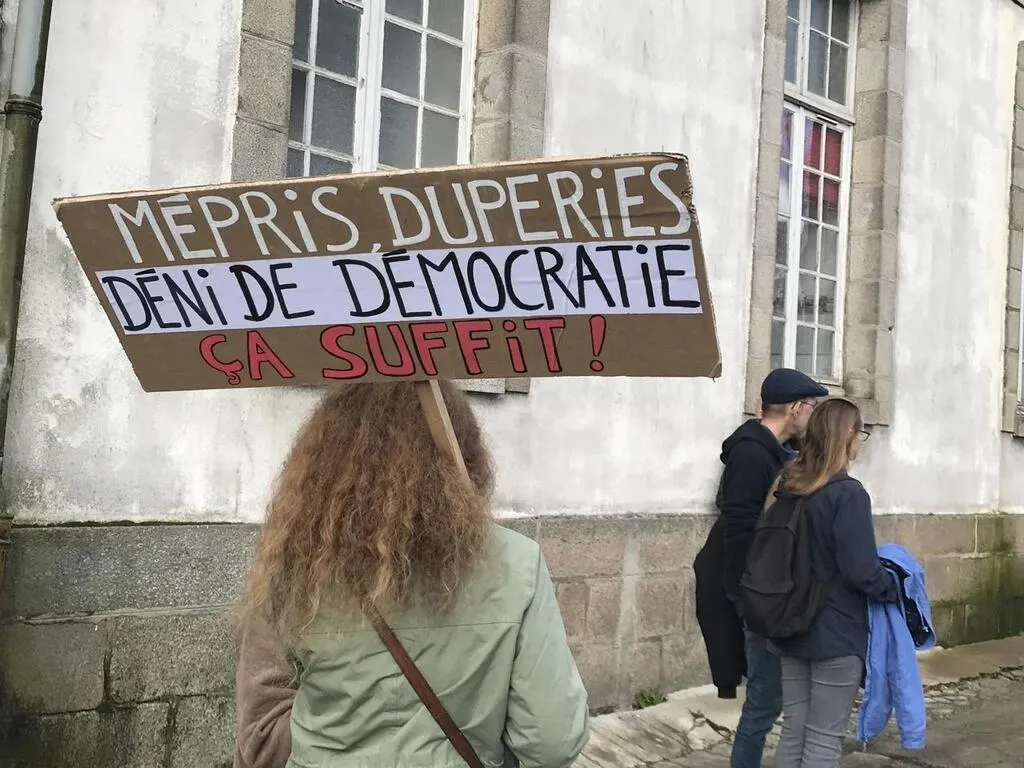 MÉPRiS, DUPERiES
DÉNi DE DÉMOCRATiE
ÇA SUFFiT !